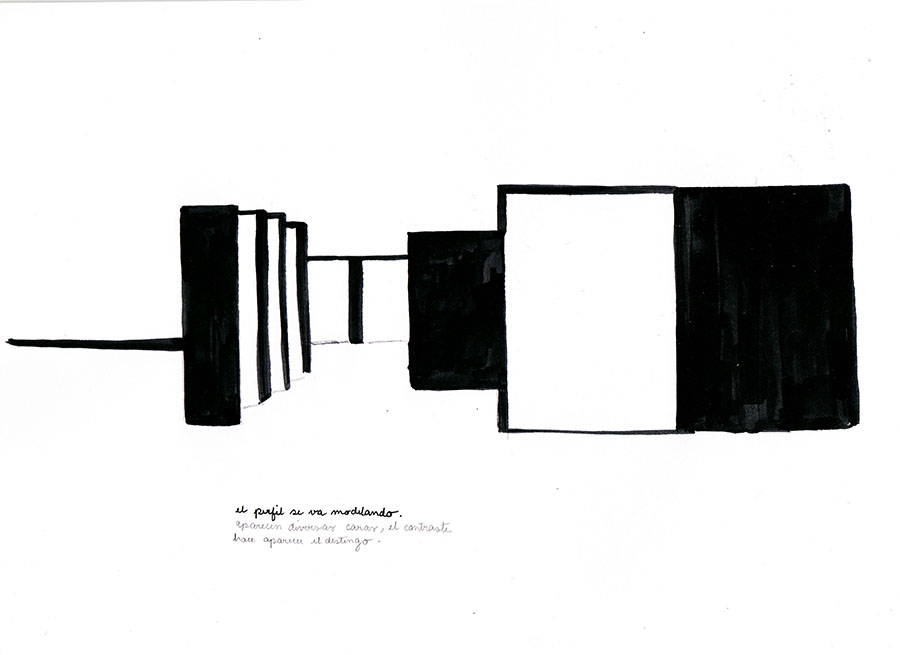 el perfil se va modelando.
aparecen diversas caras, el contraste
hace aparecer el distingo.